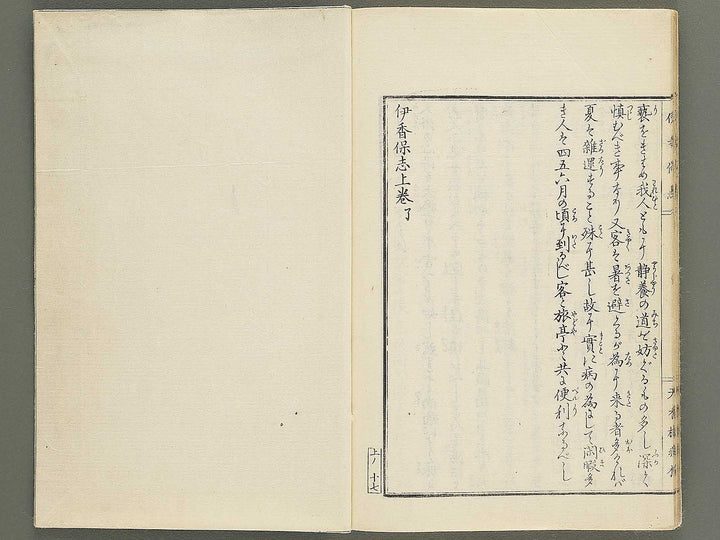 褻をきそめ我人ともに静養の道を妨ぐるもの多し深く
慎むべき事なり又客は暑を避くるが為に来る者多ければ
夏は雑遝すること殊に甚し故に實に病の為にして閑暇多
き人は四五六月の頃に到るべし客と旅亭と共に便利なるべし
伊香保志上巻 了
上ノ 十七